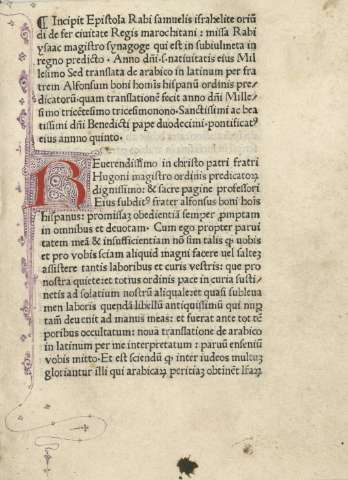 ¶ Incipit Epistola Rabi samuelis israhelite oriũ
di de fer ciuitate Regis marochitani : missa Rabi
ysaac magistro synagoge qui est in subiulmeta in
regno predicto. Anno dñi.s.natiuitatis eius Mil
lesimo Sed translata de arabico in latinum per fra
trem Alfonsum boni hoĩs hispanũ ordinis pre
dicatorũ.quam translationẽ fecit anno dñi Mille
simo tricẽtesimo tricesimonono. Sanctissimi ac bea
tissimi dñi Benedicti pape duodecimi.pontificatꝰ
eius annno quinto.
REuerendissimo in christo patri fratri
Hugoni magistro ordinis predicatoꝝ
dignissimo: & sacre pagine professori
Eius subditꝰ frater alfonsus boni hoĩs
hispanus: promissaꝫ obedientiã semper ꝓmptam
in omnibus et deuotam. Cum ego propter parui
tatem meã & insufficientiam nõ sim talis ꝙ uobis
et pro vobis sciam aliquid magni facere uel salteꝫ
assistere tantis laboribus et curis vestris: que pro
nostra quiete: et totius ordinis pace in curia susti
netis ad solatium nostrũ aliquale: et quasi subleua
men laboris quendã libellũ antiquissimũ qui nuꝑ
tañ deuenit ad manus meas: et fuerat ante tot tẽ
poribus occultatum: noua translatione de arabico
in latinum per me interpretatum : paruũ enseniũ
vobis mitto. Et est sciendũ ꝙ inter iudeos multuꝫ
gloriantur illi qui arabicaꝝ peritiaꝫ obtinẽt lr̃aꝝ